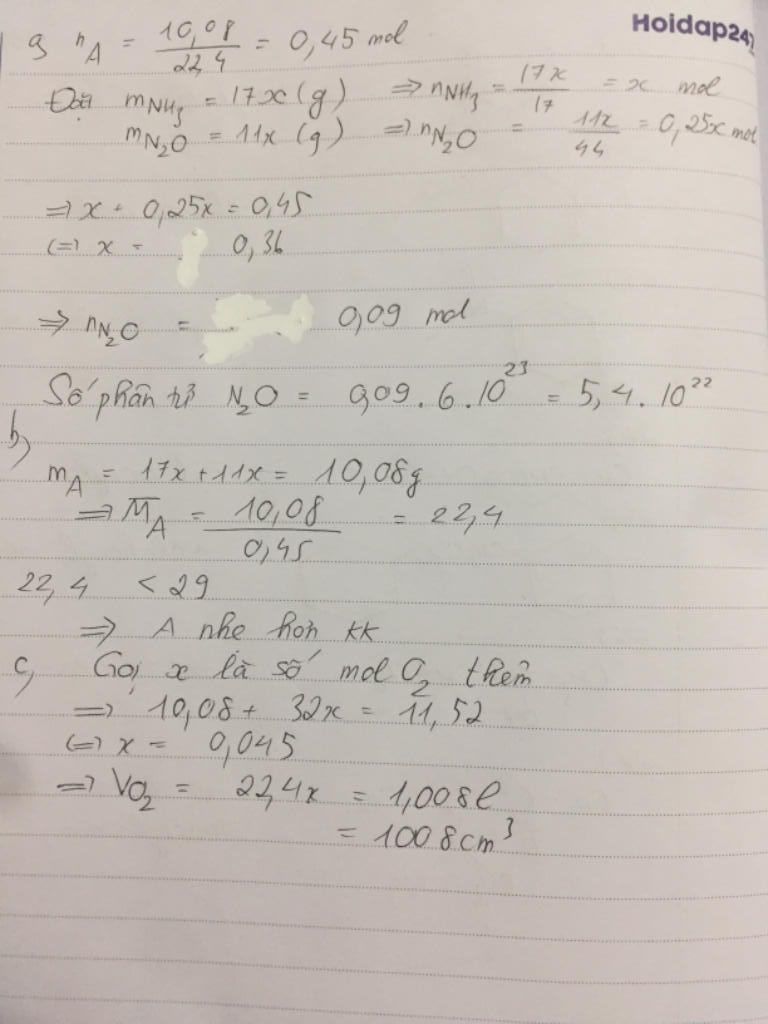 Hoidap247
a) nA = 10,08/22,4 = 0,45 mol
Đặt mNH3 = 17x (g) => nNH3 = 17x/17 = x mol
mN2O = 11x (g) => nN2O = 11x/44 = 0,25x mol
=> x + 0,25x = 0,45
(=) x = 0,36
=> nN2O = 0,09 mol
Số phân tử N2O = 0,09 . 6 . 10^23 = 5,4 . 10^22
b)
mA = 17x + 11x = 10,08g
=> M̅A = 10,08/0,45 = 22,4
22,4 < 29
=> A nhẹ hơn kk
c) Gọi x là số mol O2 thêm
=> 10,08 + 32x = 11,52
(=) x = 0,045
=> VO2 = 22,4x = 1,008l
= 1008cm^3